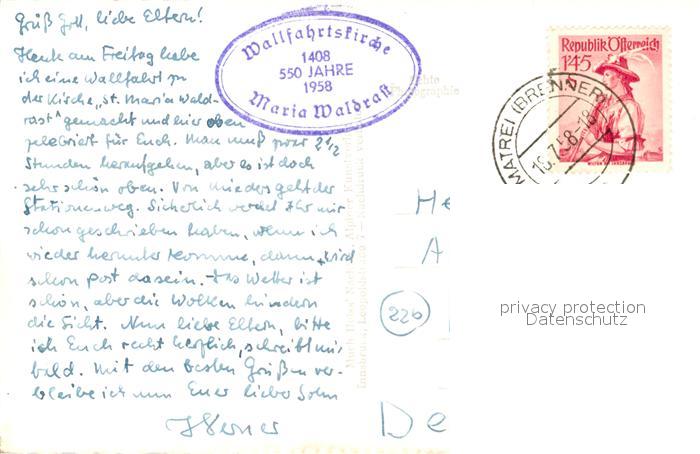 Grüß Gott, liebe Eltern!
Heute am Freitag habe
ich eine Wallfahrt zu
der Kirche "St. Maria Wald-
rast" gemacht und hier oben
zelebriert für Euch. Man muß zwar 2 1/2
Stunden heraufgehen, aber es ist doch
sehr schön oben. Von mieders geht der
Stationenweg. Sicherlich werdet Ihr mir
schon geschrieben haben, wenn ich
wieder herunter komme, dann wird
schon Post dasein. Das Wetter ist
schön, aber die Wolken hindern
die Sicht. Nun liebe Eltern, bitte
ich Euch recht herzlich, schreibt mir
bald. Mit den besten Grüßen ver-
bleibe ich nun Euer lieber Sohn
Werner
Wallfahrtskirche
1408
550 JAHRE
1958
Maria Waldrast
Republik Österreich
1 S 45
MATREI (BRENNER)
18.7.58-18
He
A
22b
De
privacy protection
Datenschutz